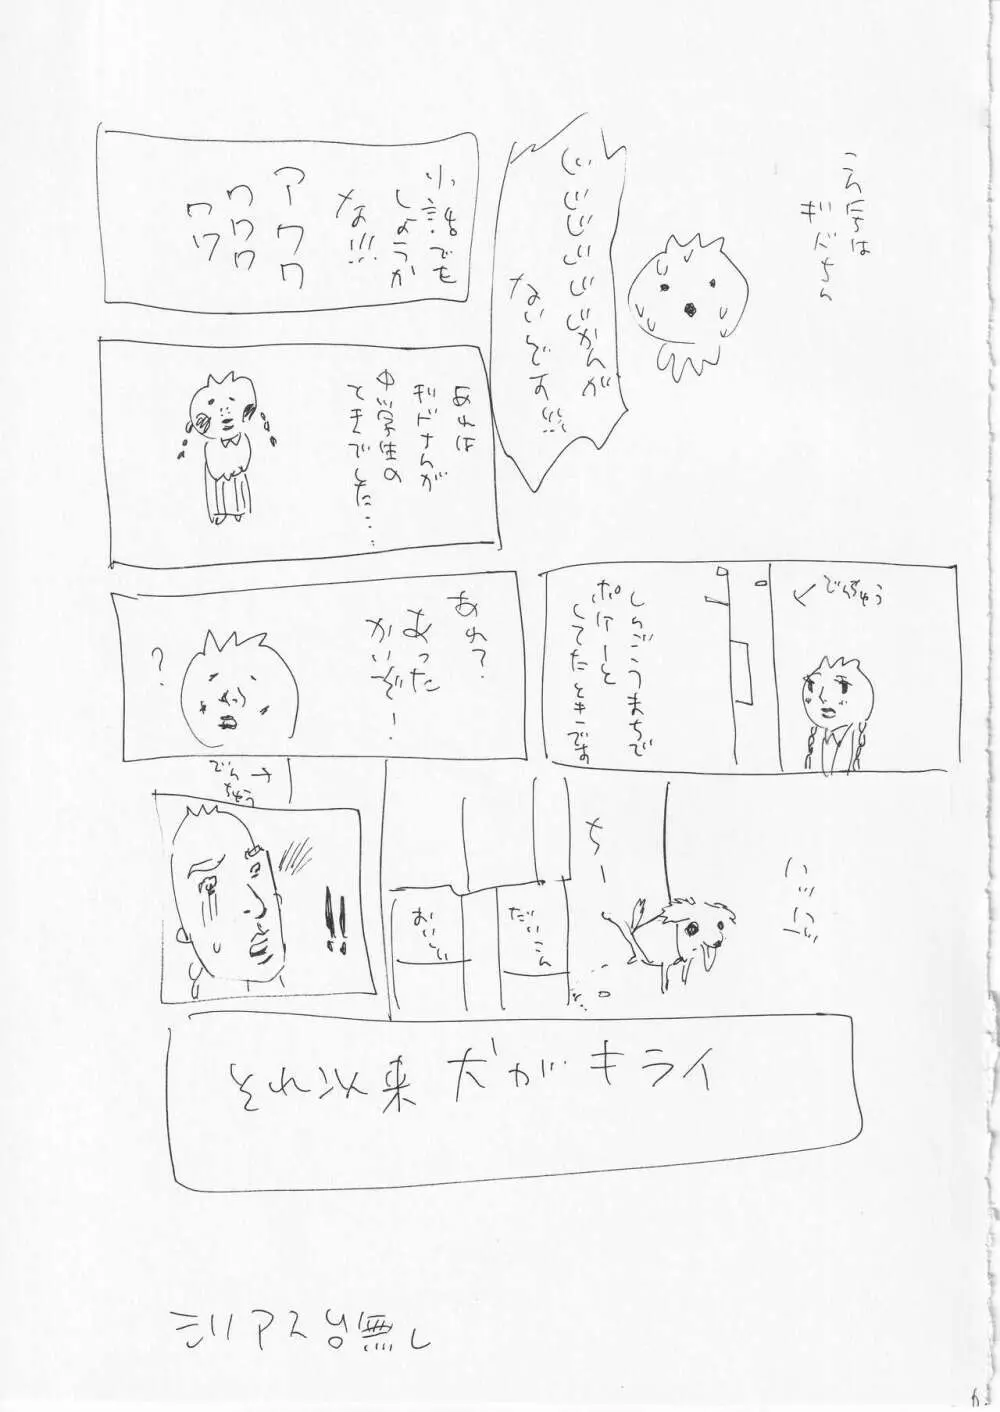 こんにちは
ギドちん
じじじじじじかんが
ないんです!!!
小話でも
しようか
な!!!
アーワワ
ワワワ
ワワ
あれは
ギドちんが
中学生の
ときでした……
でんちゅう
しんごうまちで
ボけーっと
してたときです
あれ?
あった
かいぞ!
?
ハッハッ
ちー
だいこん
おいしい
でん
ちゅう
!!
それ以来犬がキライ
シリアス皆無し